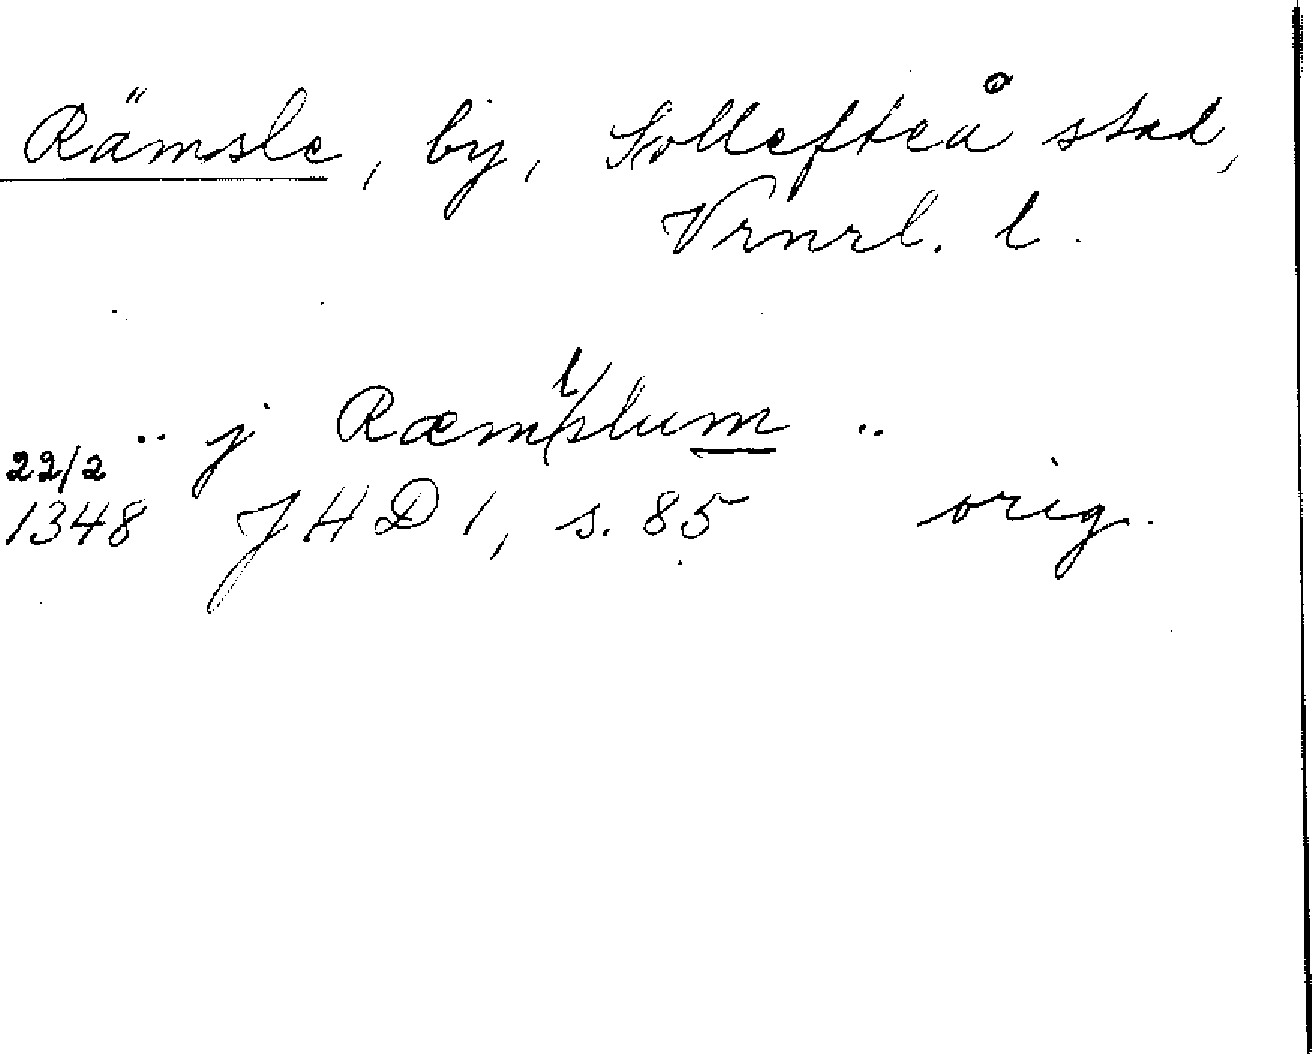 Rämsle, by, Sollefteå stad,
Vrnrl. l.
.. j Ræmslum ..
22/2
1348 JHD 1, s. 85 orig.